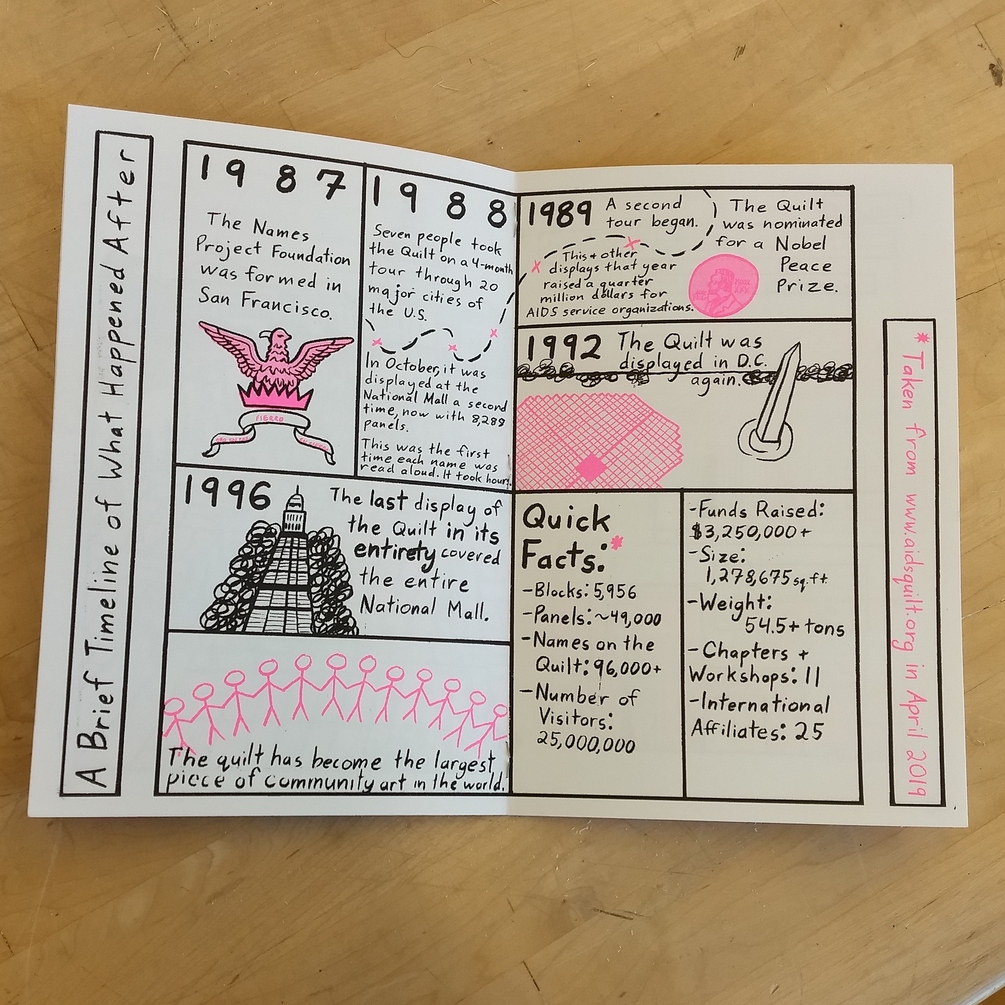 A Brief Timeline of What Happened After
1987
The Names
Project Foundation
was formed in
San Francisco.
FIERRO
1988
Seven people took
the Quilt on a 4-month
tour through 20
major cities of
the U.S.
In October, it was
displayed at the
National Mall a second
time, now with 8,289
panels.
This was the first
time each name was
read aloud. It took hours.
1989
A second
tour began.
This + other
displays that year
raised a quarter
million dollars for
AIDS service organizations.
The Quilt
was nominated
for a Nobel
Peace
Prize.
1992
The Quilt was
displayed in D.C.
again.
1996
The last display of
the Quilt in its
entirety covered
the entire
National Mall.
The quilt has become the largest
piece of community art in the world.
Quick
Facts:*
-Blocks: 5,956
-Panels: ~49,000
-Names on the
Quilt: 96,000+
-Number of
Visitors:
25,000,000
-Funds Raised:
$3,250,000+
-Size:
1,278,675 sq.ft
-Weight:
54.5+ tons
-Chapters +
Workshops: 11
-International
Affiliates: 25
*Taken from www.aidsquilt.org in April 2019